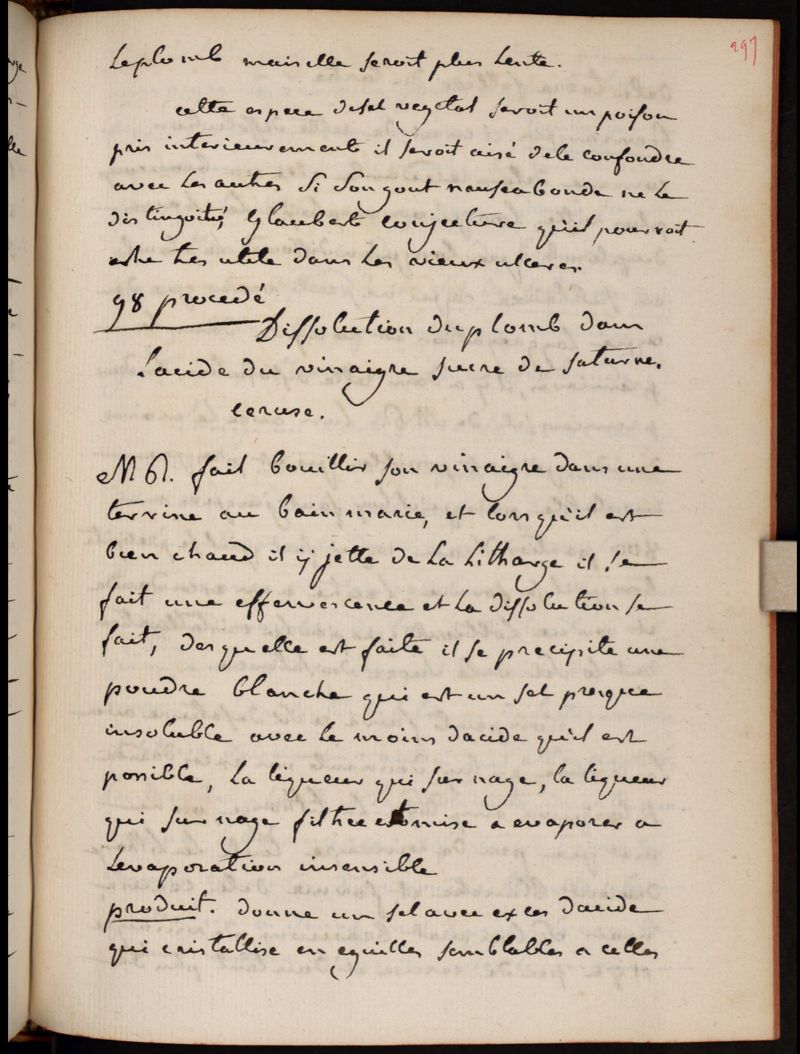 297
Le plomb mais elle seroit plus Lente.
cette espece de sel vegetal seroit un poison
pris interieurement il seroit aisé de le confondre
avec Les autres Si Son gout nauseabonde ne Le
distingoit, Glaubert conjecture qu'il pourroit
estre tres utile dans Les vieux ulceres.
98 procedé
Dissolution du plomb dans
L'acide du vinaigre sucre de saturne.
ceruse.
M R. fait bouillir son vinaigre dans une
terrine au bain marie, et lorsqu'il est
bien chaud il ij jette de La Litharge il se
fait une effervescence et La dissolution se
fait, des qu'elle est faite il se precipite une
poudre blanche qui est un sel presque
insoluble avec Le moins dacide qu'il est
possible, La liqueur qui sur nage, la liqueur
qui sur nage filtree et mise a evaporer a
Levaporation insensible
produit. donne un sel avec exces dacide
qui cristallise en eguilles semblables a celles